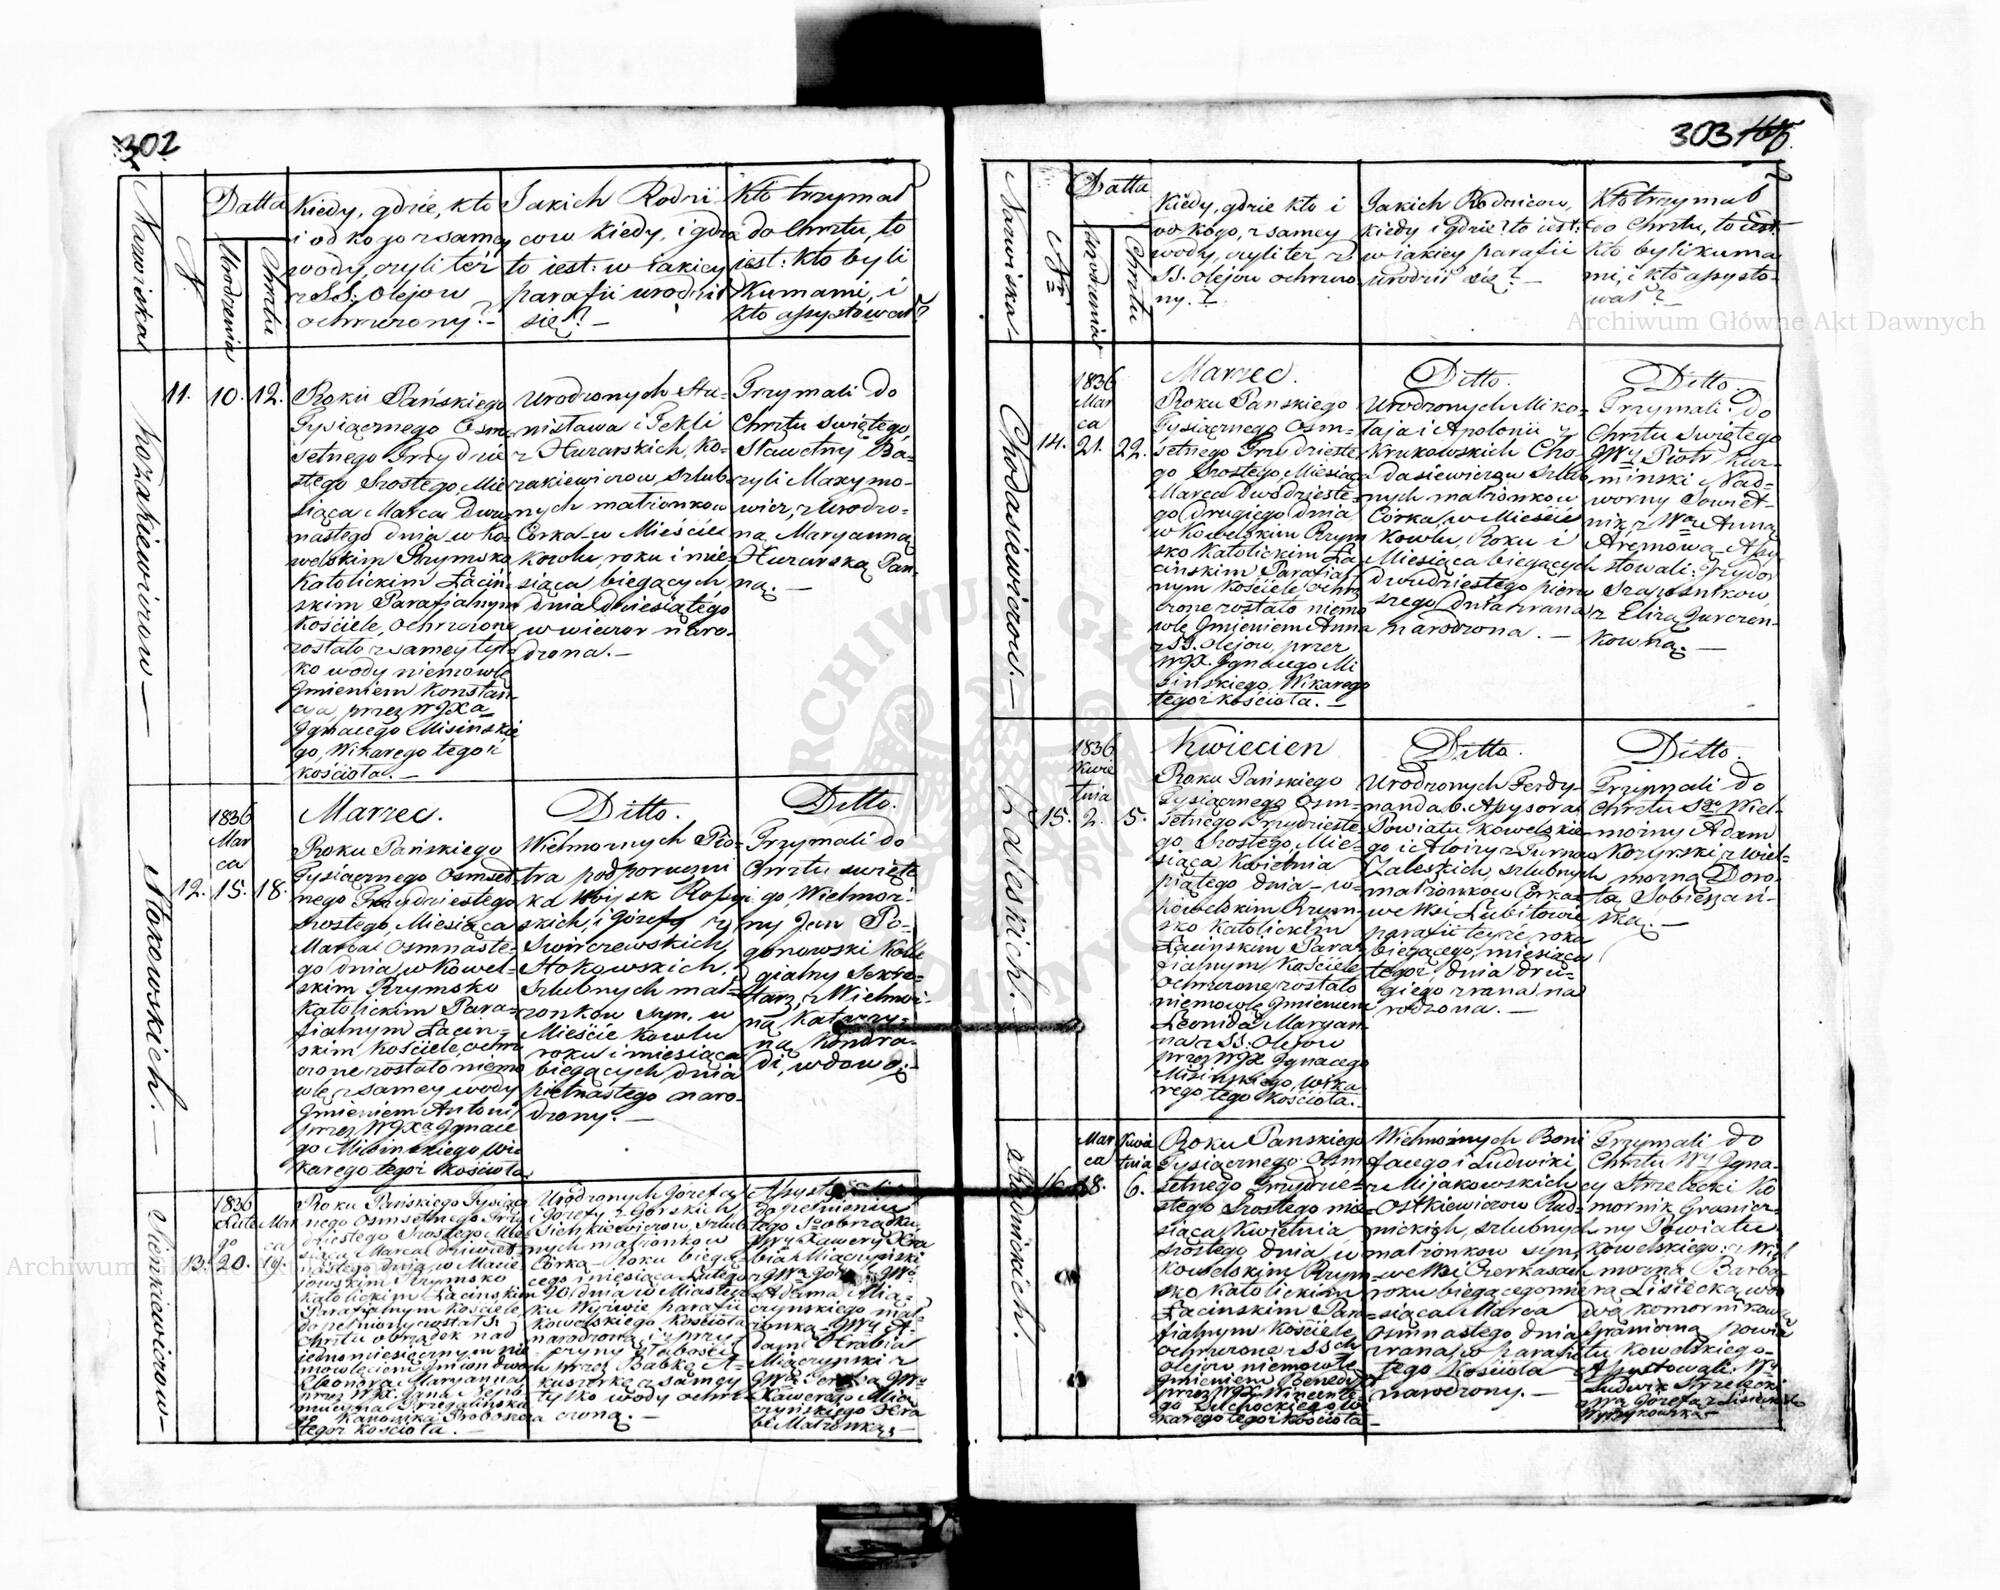 302
Nazwiska
N.
Datta
Urodzenia
Chrztu
Kiedy, gdzie, kto
i od kogo z samey
wody, czyli też
z SS. Olejow
ochrzczony?
Jakich Rodzi
cow kiedy, i gdzie
to iest: w iakiey
parafii urodził
się?
Kto trzymał
do Chrztu, to
iest: kto byli
Kumami, i
kto assystował?
Kozakiewiczow
11.
10.
12.
Roku Pańskiego
Tysiącznego Osm
setnego Trzydzie
stego Szostego, Mie
siąca Marca dwu
nastego dnia w Ko
welskim Rzymsko
Katolickim Łaciń
skim Parafialnym
Kościele, Ochrzczone
zostało z samey tyl
ko wody niemowlę
Jmieniem Konstan
cya, przez WJXa
Jgnacego Misinskie
go, Wikarego tegoż
kościoła.
Urodzonych Sta=
nisława i Tekli
z Huzarskich, Ko=
zakiewiczow, szlub
nych małżonkow
Corka w Mieście
Kowlu, roku i mie
siąca biegących,
dnia dziesiątego
w wieczor naro=
dzona.
Trzymali do
Chrztu Świętego,
Sławetny Ba=
zyli Maxymo=
wicz, z Urodzo=
ną Maryanną
Huzarską Pan=
ną.
Stokowskich.
12.
1836
Mar
ca
15.
18.
Marzec.
Roku Pańskiego
Tysiącznego Osmset
nego Trzydziestego
Szostego, Miesiąca
Marca Osmnaste=
go dnia, w Kowel=
skim Rzymsko
Katolickim Para=
fialnym Łacin=
skim Kościele, ochrz
czone zostało niemo
wlę z samey wody
Jmieniem Antoni
przez WJXa Jgnace
go Misinskiego Wi
karego tegoż Kościoła
Ditto.
Wielmoznych Pio=
tra podporuczni
ka Woysk Rossyi
skich, i Jozefy z
Swirczewskich,
Stokowskich,
Szlubnych mał=
żonkow syn, w
Mieście Kowlu
roku i miesiąca
biegących dnia
piętnastego naro=
dzony.
Ditto.
Trzymali do
Chrztu święte
go, Wielmoż=
ny Jan Po=
gonowski Kolle
gialny Sekre=
tarz, z Wielmoż=
ną Katarzy=
ną Kondra=
di, wdową.
Sienkiewiczow
13.
1836
Lute
go
20.
Mar
ca
19.
Roku Pańskiego Tysiącz
nego Osmsetnego Trzy
dziestego Szostego Mie
siąca Marca dziewięt
nastego dnia, w Macie
jowskim Rzymsko
Katolickim Łacinskim
Parafialnym Kościele
dopełniony został S.
Chrztu obrządek nad
jednomiesięcznym nie
mowlęciem, Jmion dwoch
Eleonora Maryanna,
przez WJX. Jana Nepo
mucyna Przegalińskie
go Kanonika Proboszcza
tegoż Kościoła.
Urodzonych Jozefa
i Jozefy z Gorskich
Sienkiewiczow, szlub
nych małżonkow
Corka Roku biegą
cego, miesiąca Lutego
20. dnia w Miastecz
ku Wyżwie parafii
Kowelskiego Kościoła
narodzona, i z przy=
czyny słabości
przez Babkę A=
kuszerkę z samey
tylko wody ochrz
czona.
dopełnieniu
tego S. obrządku,
JWy Xawery Hra
bia Miączyński
z JWą
Adama Mią=
czyńskiego mał=
żonką JWy A=
dam Hrabia
Miączyński z
JWą
Xawerego Mią
czyńskiego Hra
bi Małżonką.
303
Nazwiska
Nr
Datta
Urodzenia
Chrztu
Kiedy, gdzie kto i
od kogo, z samey
wody, czyli też z
SS. Olejow ochrzczo
ny?
Jakich Rodzicow,
kiedy i gdzie? to iest:
w iakiey parafii
urodził się?
Kto trzymał
do Chrztu, to iest
kto byli kuma
mi, i kto assysto=
wał?
Chodasiewiczow.
14.
1836
Mar
ca
21.
22.
Marzec.
Roku Pańskiego
Tysiącznego Osm=
setnego Trzydzieste
go Szostego, Miesiąca
Marca Dwudzieste=
go drugiego dnia,
w Kowelskim Rzym
sko Katolickim Ła=
cińskim Parafial=
nym Kościele, ochrz
czone zostało niemo
wlę Jmieniem Anna
z SS. Olejow, przez
WJX. Jgnacego Mi
sińskiego, Wikarego
tegoż kościoła.
Ditto.
Urodzonych Miko=
łaja i Apolonii z
Krukowskich Cho=
dasiewiczow szlub
nych małżonkow
Corka, w Mieście
Kowlu, Roku i
Miesiąca biegących
dwudziestego pierw
szego dnia zrana
narodzona.
Ditto.
Trzymali do
Chrztu Swiętego
JWy Piotr Kur=
minski Nad=
worny Sowiet=
nik, z Wą Anną
Assy
stowali: Jzydor
z Elizą Jurczen=
kowną.
Zaleskich.
15.
1836
Kwie
tnia
2.
5.
Kwiecien
Roku Pańskiego
Tysiącznego Osm=
setnego Trzydzieste
go Szostego, Mie=
siąca Kwietnia
piątego dnia w
Kowelskim Rzym=
sko Katolickim
Łacinskim Para=
fialnym Kościele
Ochrzczone zostało
niemowlę Jmieniem
Leonida Maryan=
na z SS. Olejow
przez WJX. Jgnacego
Misinskiego, Wika
rego tego Kościoła.
Ditto.
Urodzonych Ferdy=
nanda b. Assysora
Powiatu kowelskie
go i Aloizy z Turno
Zaleskich, szlubnych
małżonkow Corka
we Wsi Lubitowie
parafii teyże, roku
biegącego, miesiąca
tegoż dnia dru=
giego zrana na
rodzona.
Ditto.
Trzymali do
Chrztu Sgo Wiel=
możny Adam
Kozyrski, z Wiel=
możną Doro=
tą Sobieszań=
ską.
Radnickich.
16.
Mar
ca
18.
Kwie
tnia
6.
Roku Panskiego
Tysiącznego Osm
setnego Trzydzie=
stego Szostego mie
siąca Kwietnia
szostego dnia w
Kowelskim Rzym
sko Katolickim
Łacinskim Para
fialnym Kościele,
ochrzczone z SSch
Olejow niemowlę
Jmieniem Benedykt
przez WJX. Wincente=
go Wi
karego tegoż Kościoła
Wielmożnych Boni
facego i Ludwiki
z Mijakowskich
Ostkiewiczow Rad=
nickich, szlubnych
małżonkow syn,
we Wsi Czerkasach
roku biegącego mie
siąca Marca
osmnastego dnia
zrana, w parafii
tego Kościoła
narodzony.
Trzymali do
Chrztu Wy Jgna=
cy Strzelecki Ko
mornik Granicz=
ny Powiatu
Kowelskiego, z Wiel
możną Barba=
rą Lisiecką, wdo
wą Komornikową
Graniczną powia
tu Kowelskiego
Assystowali: Wy
Ludwik Strzelecki
z Wą Jozefą z Lisieckich
Archiwum Główne Akt Dawnych
Archiwum Główne Akt Dawnych